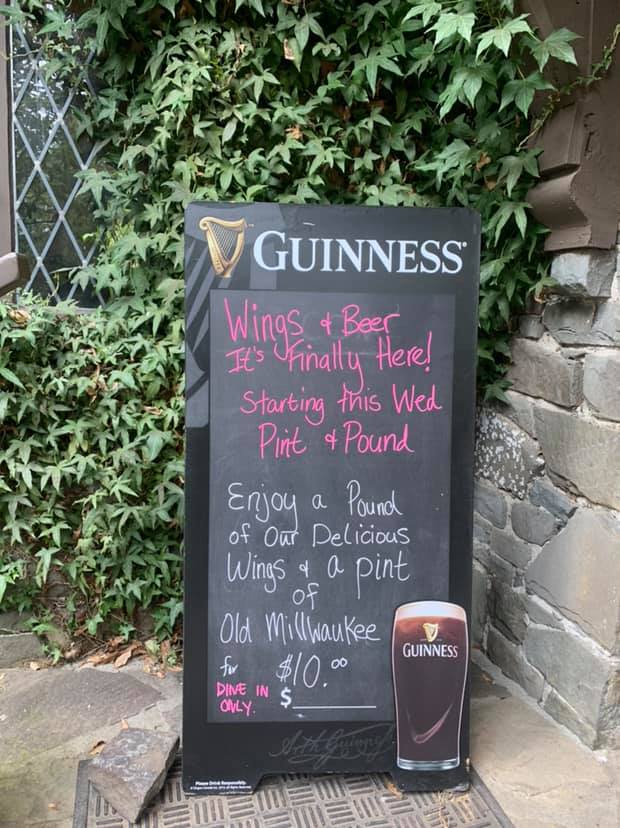 GUINNESS
Wings & Beer
It's Finally Here!
Starting this Wed
Pint & Pound
Enjoy a Pound
of Our Delicious
Wings & a pint
of
Old Millwaukee
for $10.00
DINE IN
ONLY. $
GUINNESS
Please Drink Responsibly.